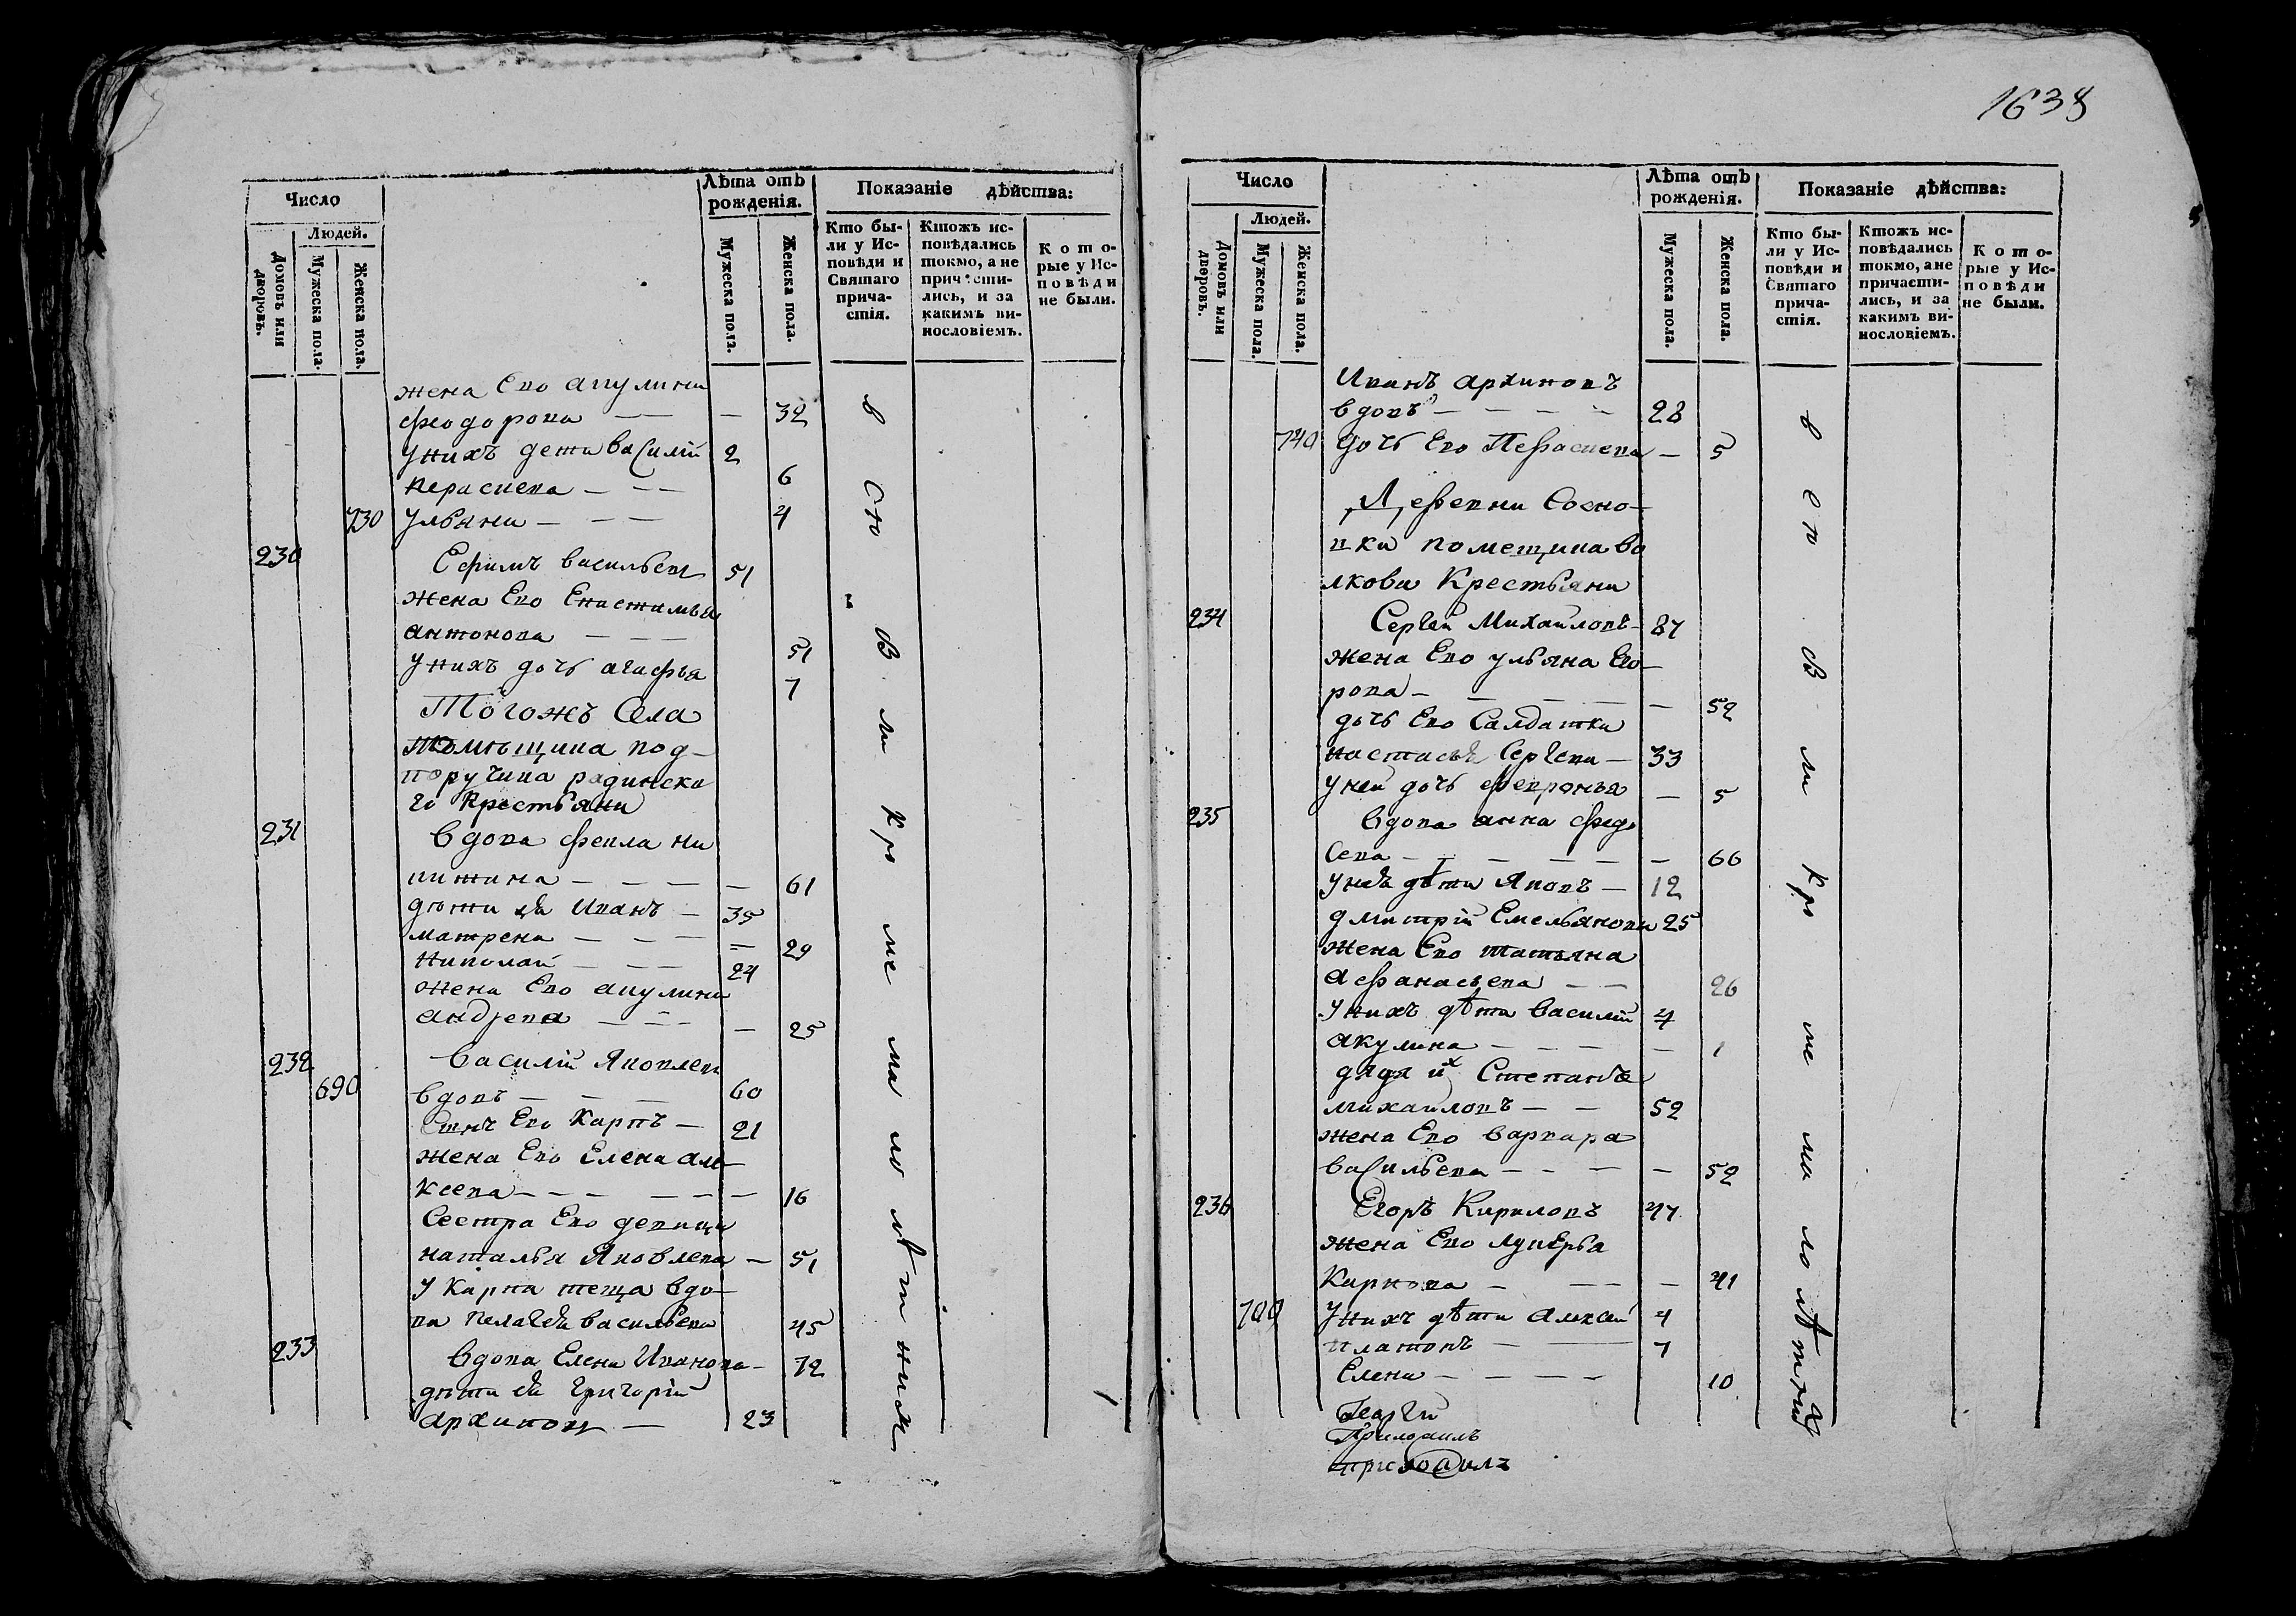 1638
Число
Людей.
Домовъ или дворовъ.
Мужеска пола.
Женска пола.
Лѣта отъ рожденія.
Мужеска пола.
Женска пола.
Показаніе дѣйства:
Кто бы-
ли у Ис-
повѣди и
Святаго
прича-
стія.
Ктожъ ис-
повѣдались
токмо, а не
причасти-
лись, и за
какимъ ви-
нословіемъ.
Кото-
рые у Ис-
повѣди
не были.
жена Ево акулина
феодорова — — 32
унихъ дети василій 2
параскева — — 6
730 ульяна — — 4
230 Ефимъ васильевъ 51
жена Ево Енистимья
антонова — — 51
унихъ дочь агафья 7
Тогожъ Села
помѣщика под-
поручика радинска
го Крестьяни
231 вдова фекла ни
китина — — — 61
дѣти ея Иванъ — 35
матрена — — — 29
николай — — 24
жена Ево акулина
андреева — — — 25
232 василій Яковлевъ
690 вдовъ — — 60
Сынъ Ево Карпъ — 21
жена Ево Елена але-
ксеева — — — 16
Сестра Ево девица
наталья Яковлева — 51
у Карпа теща вдо-
ва пелагея васильева 45
233 вдова Елена Иванова — 72
дѣти ея григорій
архиповъ — 23
всю
в ли
кро
ме
ма ло лѣт нихъ
Число
Людей.
Домовъ или дворовъ.
Мужеска пола.
Женска пола.
Лѣта отъ рожденія.
Мужеска пола.
Женска пола.
Показаніе дѣйства:
Кто бы-
ли у Ис-
повѣди и
Святаго
прича-
стія.
Ктожъ ис-
повѣдались
токмо, а не
причасти-
лись, и за
какимъ ви-
нословіемъ.
Кото-
рые у Ис-
повѣди
не были.
Иванъ архиповъ
вдовъ — — — — 28
740 дочь Ево Параскева — 5
Деревни Сосно-
вки помещика во
лкова Крестьяни
234 Сергей Михайловъ — 87
жена Ево ульяна Его-
рова — — — — 52
дочь Ево Салдатка
настасья Сергева — 33
у ней дочь февронья — 5
235 вдова анна федо
сева — — — — — 66
у нея дѣти Яковъ — 12
дмитрій Емельяновъ 25
жена Ево татьяна
афанасьева — — 26
унихъ дѣти василій 4
акулина — — — — 1
дядя ихъ Степанъ
михайловъ — — 52
жена Ево варвара
васильева — — — — 52
236 Егоръ Кириловъ 47
жена Ево лукерья
Карпова — — — — 41
700 унихъ дѣти алексей 4
платонъ — — 7
Елена — — — — 10
в ли
кро
ме
ма ло лѣт